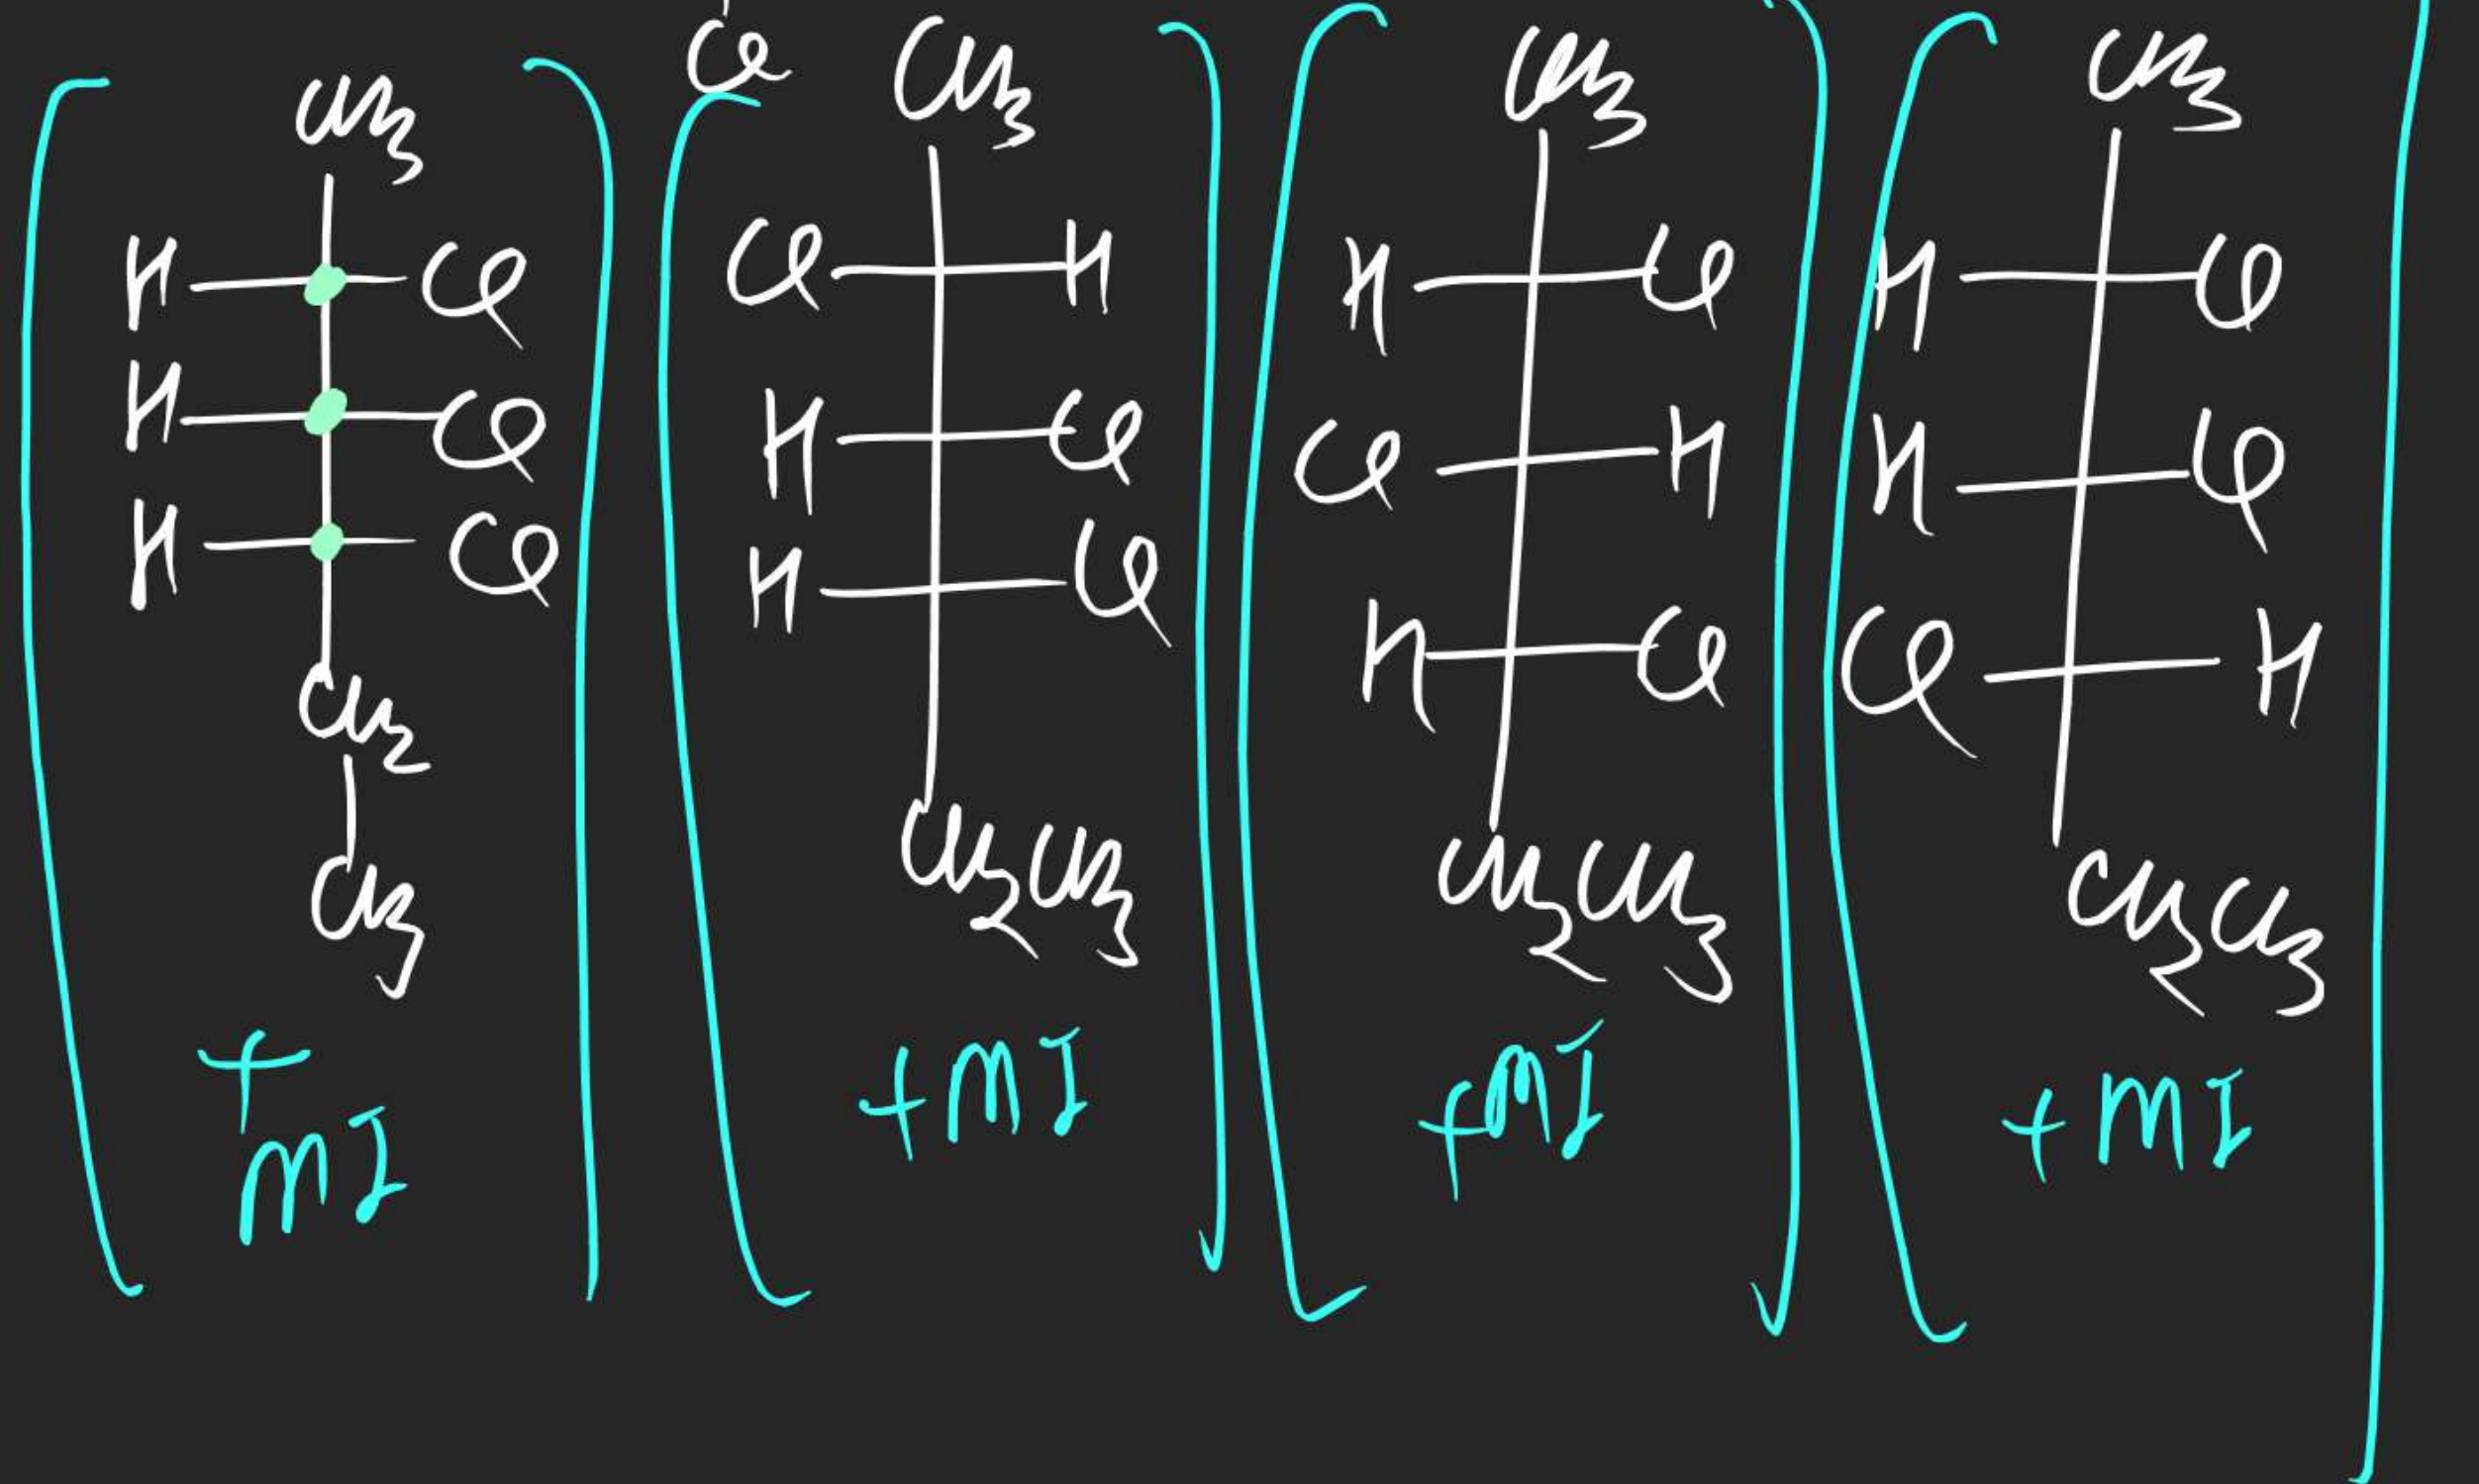 Cl
CH3
H Cl
H Cl
H Cl
CH2
CH3
+
MI
CH3
Cl H
H Cl
H Cl
CH2CH3
+MI
CH3
H Cl
Cl H
H Cl
CH2CH3
+MI
CH3
H Cl
H Cl
Cl H
CH2CH3
+MI